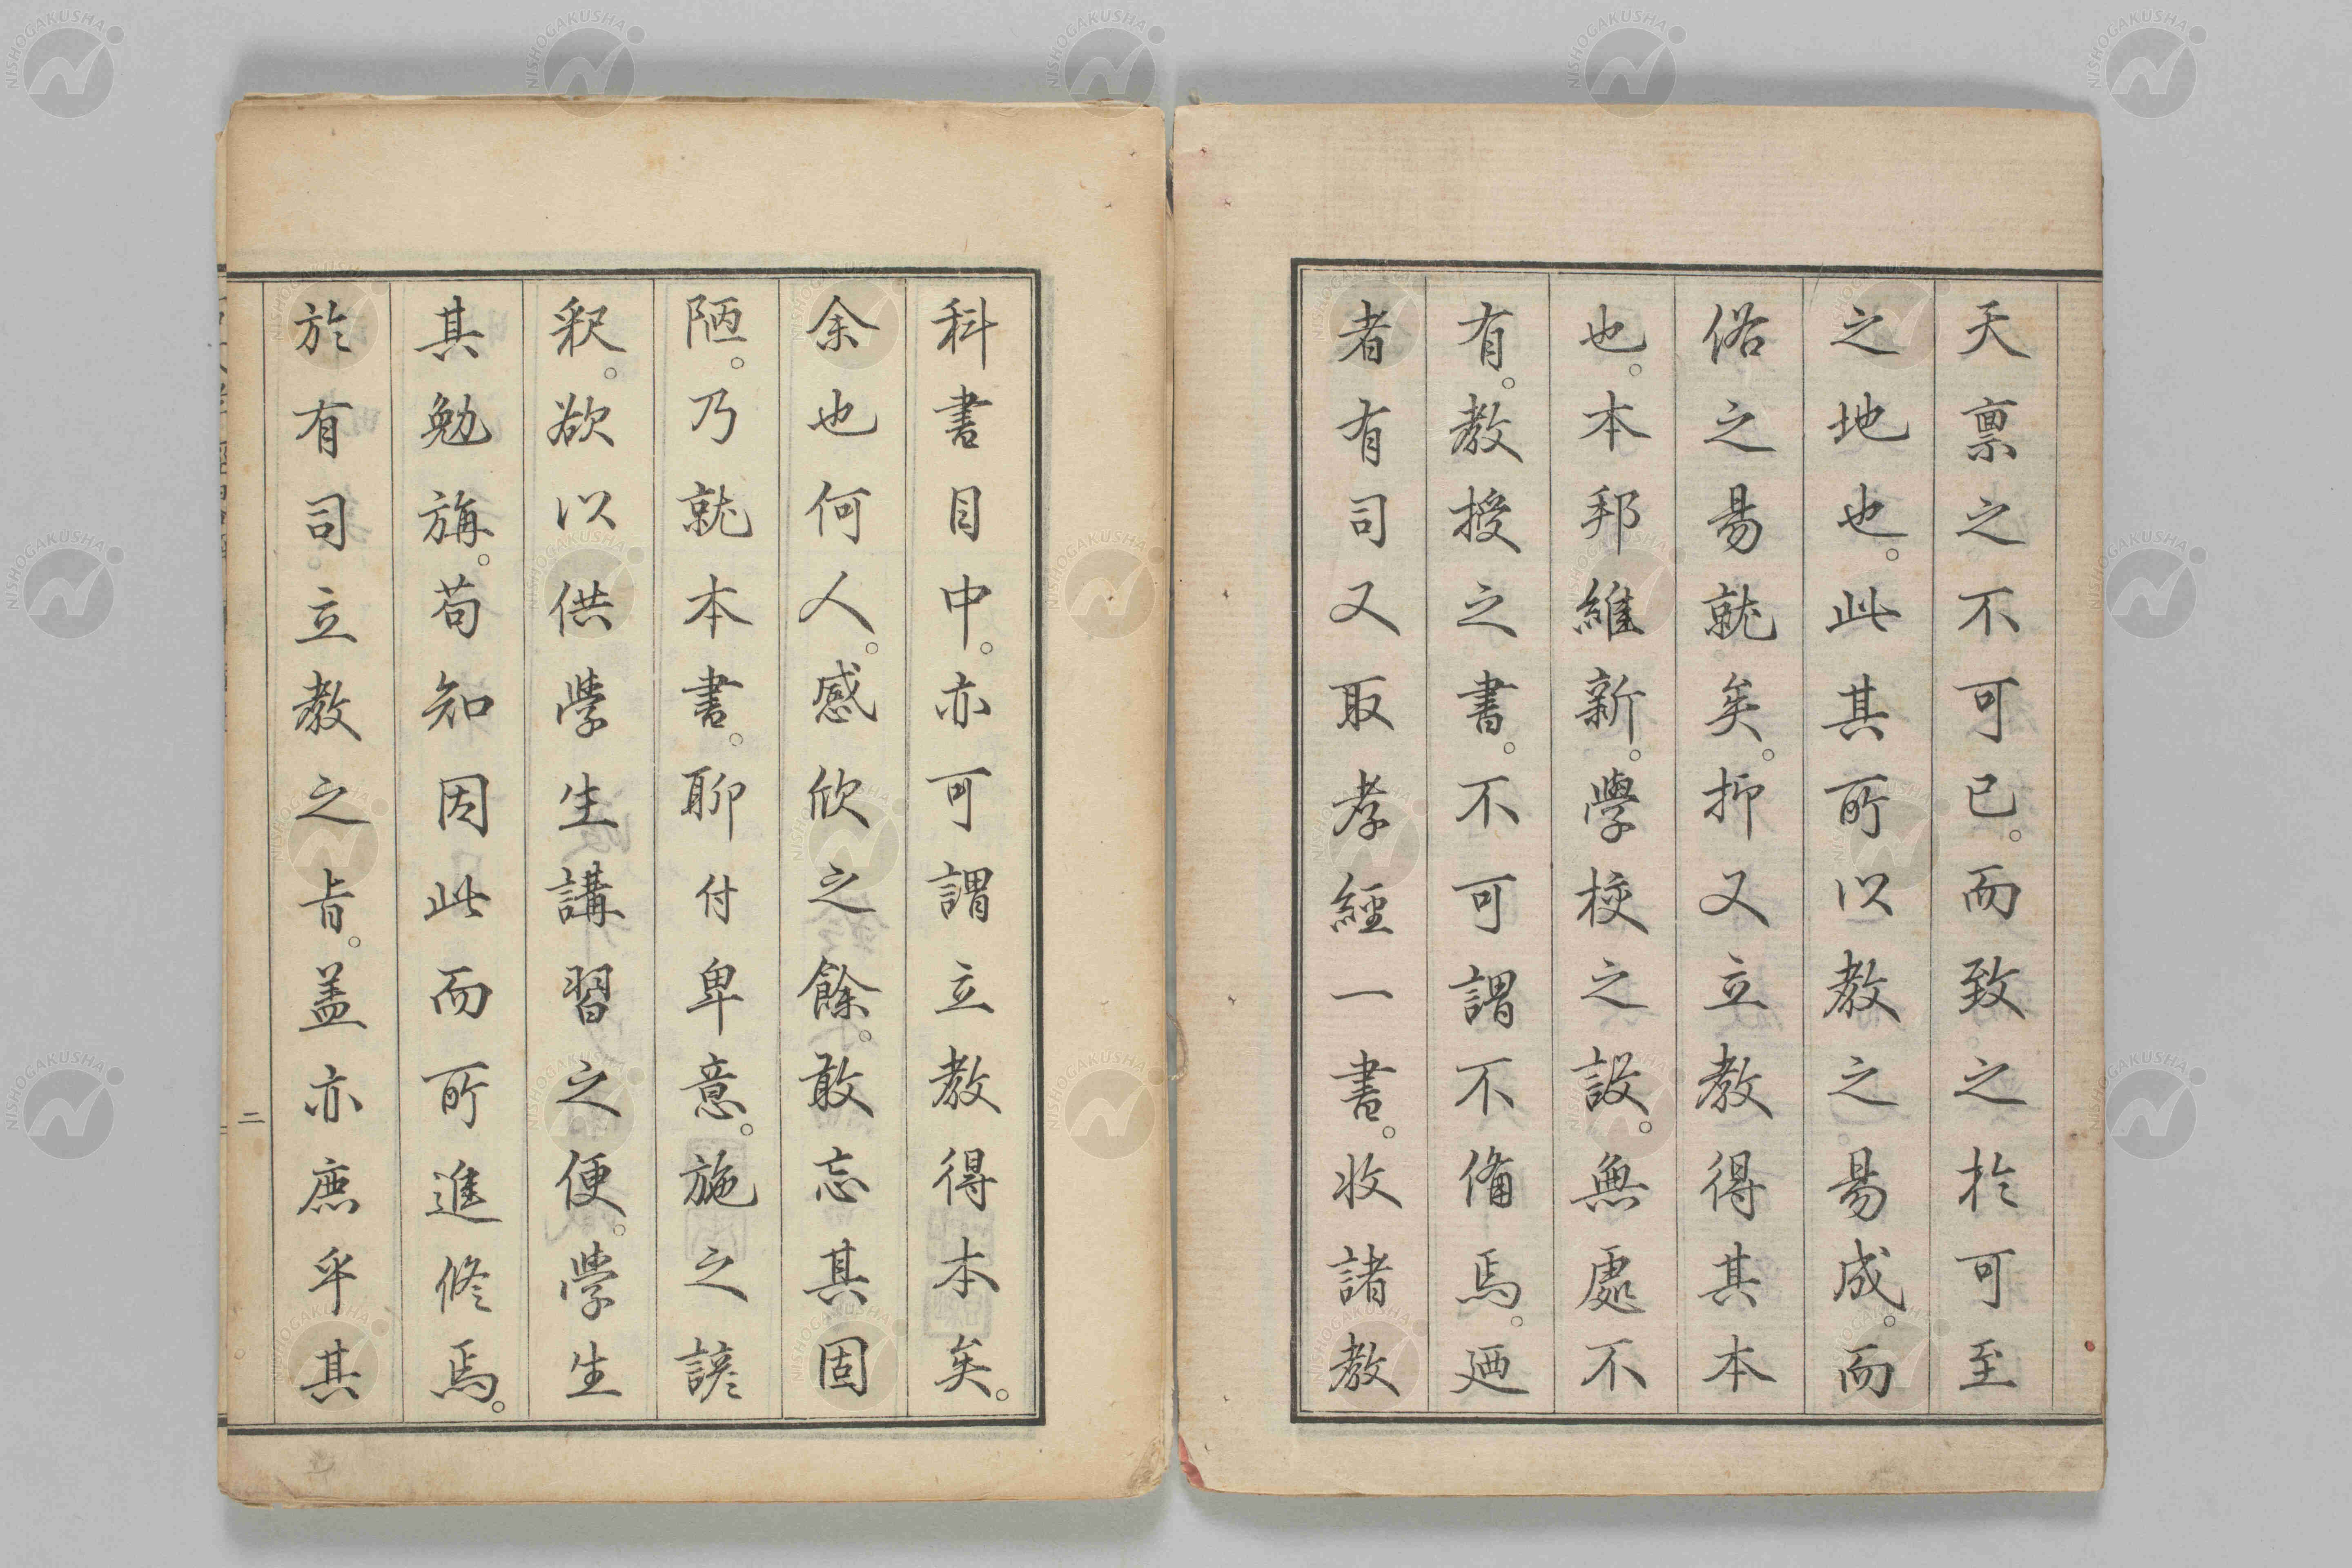 天禀之不可已。而致之於可至
之地也。此其所以教之易成。而
俗之易就矣。抑又立教得其本
也。本邦維新。學校之設。無處不
有。教授之書。不可謂不備焉。廼
者有司又取孝經一書。收諸教
科書目中。亦可謂立教得本矣。
余也何人。感欣之餘。敢忘其固
陋。乃就本書。聊付卑意。施之諺
釈。欲以供學生講習之便。學生
其勉旃。苟知因此而所進修焉。
於有司立教之旨。盖亦庶乎其
二
NISHOGAKUSHA